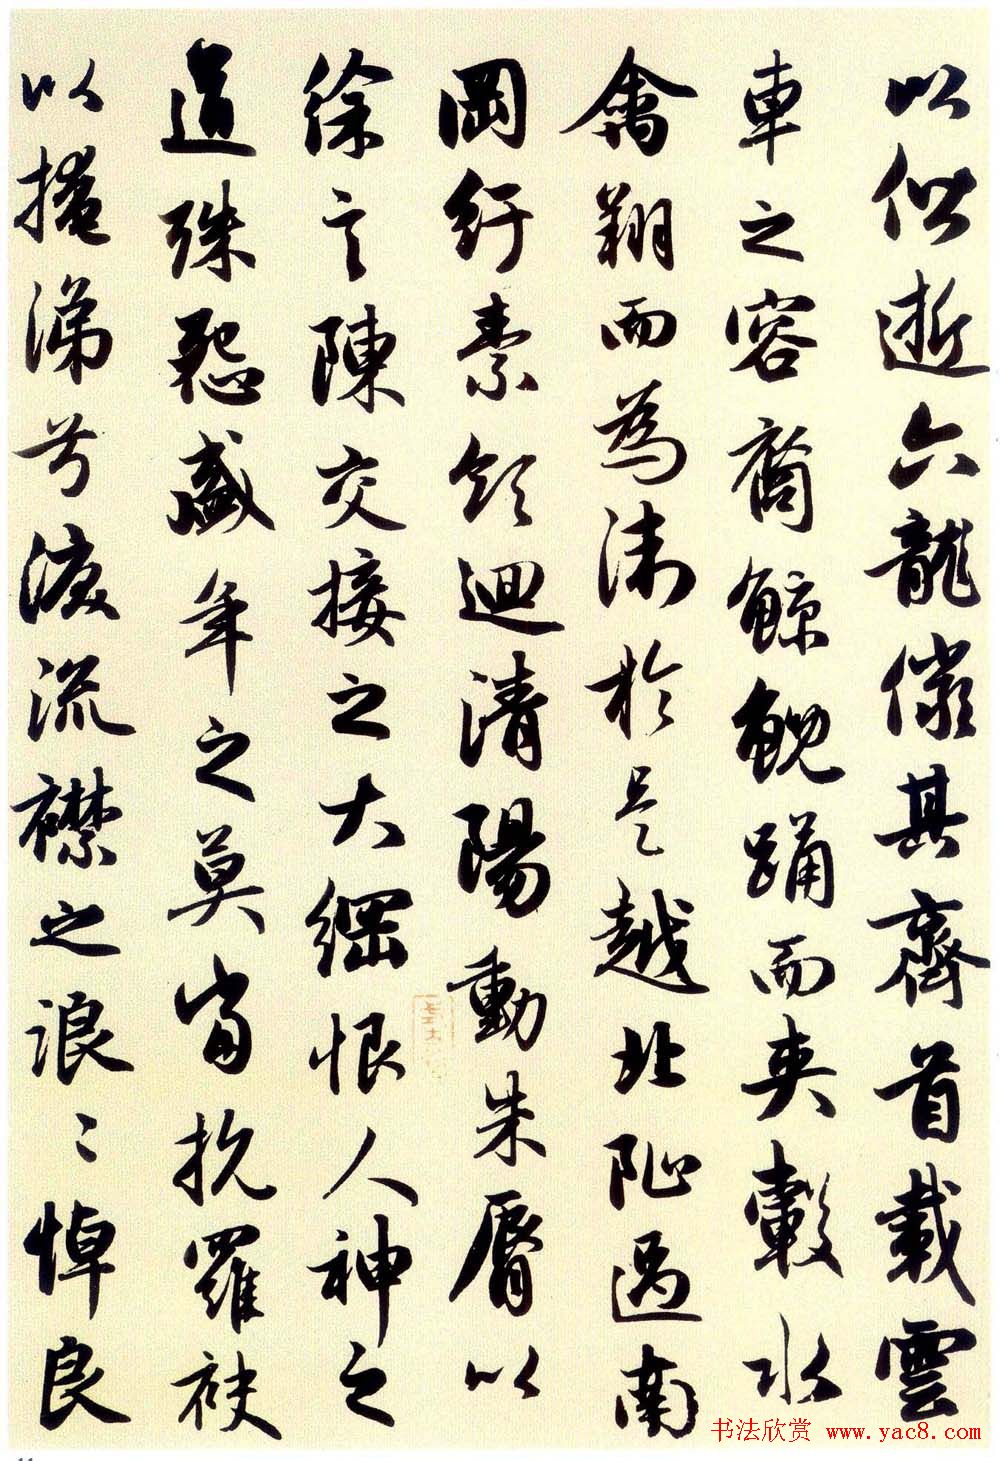 以偕逝六龍儼其齊首載雲
車之容裔鯨鯢踊而夾轂水
禽翔而為衛於是越北沚過南
岡紆素領迴清陽動朱脣以
徐言陳交接之大綱恨人神之
道殊怨盛年之莫當抗羅袂
以掩涕兮淚流襟之浪〻悼良
书法欣赏 www.yac8.com